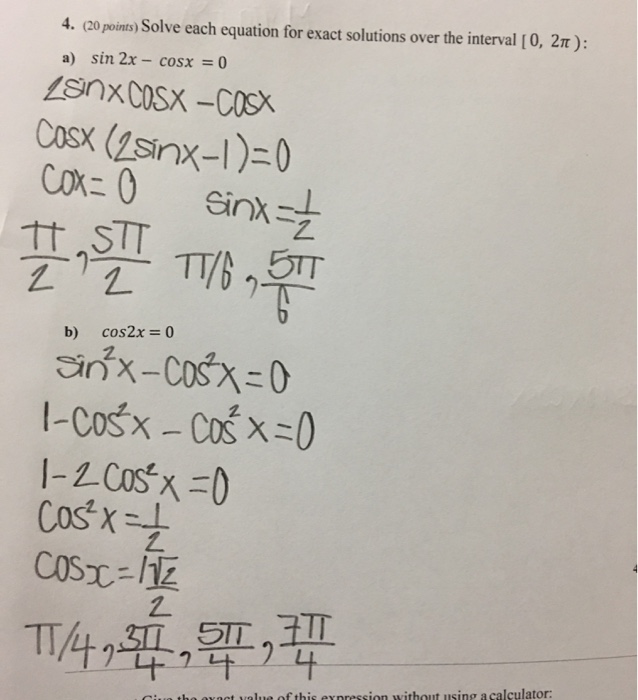 4. (20 points) Solve each equation for exact solutions over the interval [0, 2π):
a) sin 2x – cosx = 0
2sinxcosx – cosx
Cosx (2sinx–1)=0
Cox= 0 sinx = 1/2
π/2, 5π/2 π/6, 5π/6
b) cos2x = 0
sin²x – cos²x = 0
1–cos²x – cos²x = 0
1–2 cos²x = 0
Cos²x = 1/2
cosx = 1√2/2
π/4, 3π/4, 5π/4, 7π/4
the exact value of this expression without using a calculator: